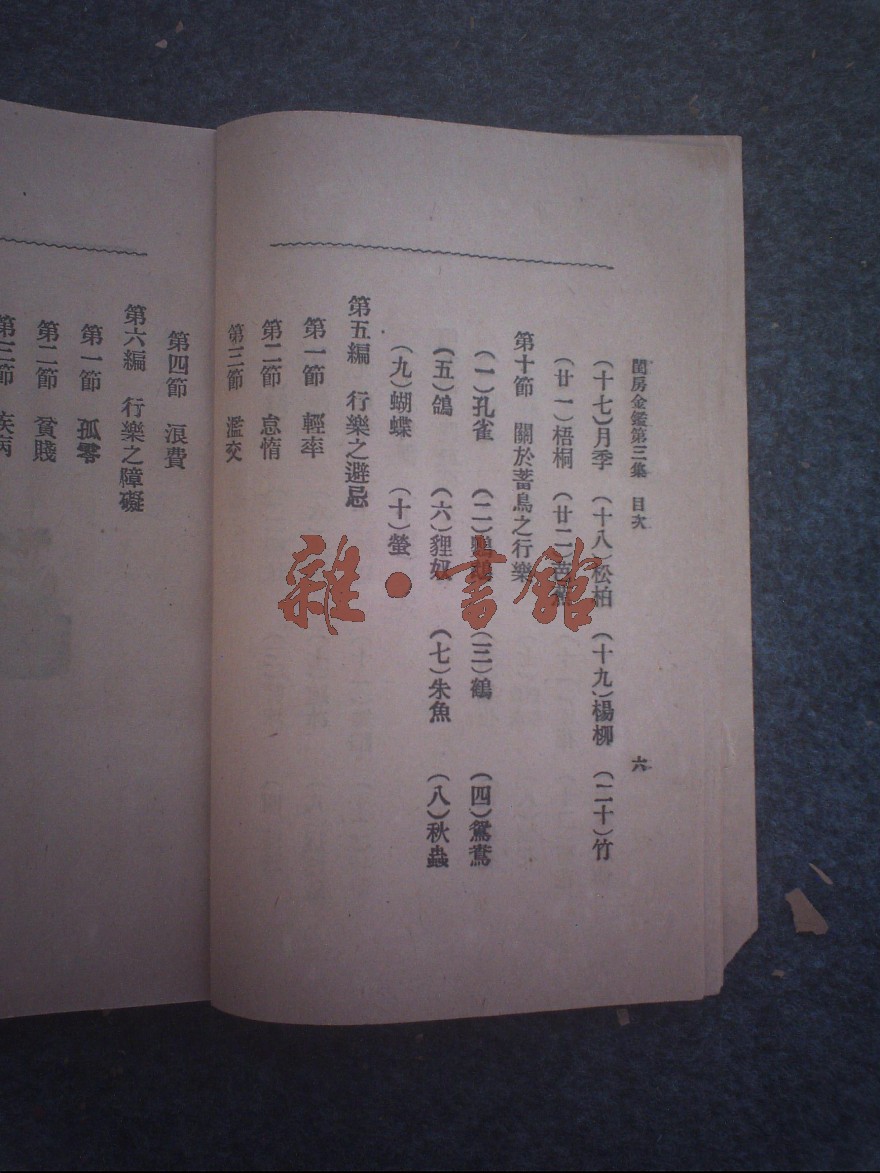 閨房金鑑第三集 目次 六
(十七)月季 (十八)松柏 (十九)楊柳 (二十)竹
(廿一)梧桐 (廿二)芭蕉
第十節 關於蓄鳥之行樂
(一)孔雀 (二)鸚鵡 (三)鶴 (四)鴛鴦
(五)鴿 (六)貍奴 (七)朱魚 (八)秋蟲
(九)蝴蝶 (十)螢
第五編 行樂之避忌
第一節 輕率
第二節 怠惰
第三節 濫交
第四節 浪費
第六編 行樂之障礙
第一節 孤零
第二節 貧賤
第三節 疾病
雜·書館